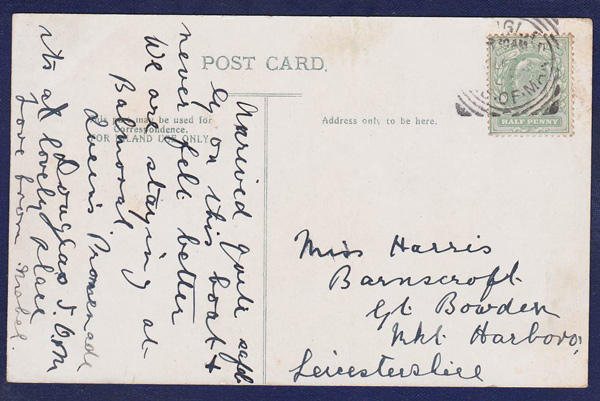 POST CARD.
This may be used for
Correspondence.
FOR INLAND USE ONLY
Address only to be here.
HALF PENNY
OF-MAN
Arrived quite safe
ly on this boat &
never felt better
We are staying at
Balmoral
Queen's Promenade
Douglas I. O. M
its a lovely place
Love from Mabel.
Miss Harris
Barnscroft
Gt. Bowden
Mkt Harboro,
Leicestershire